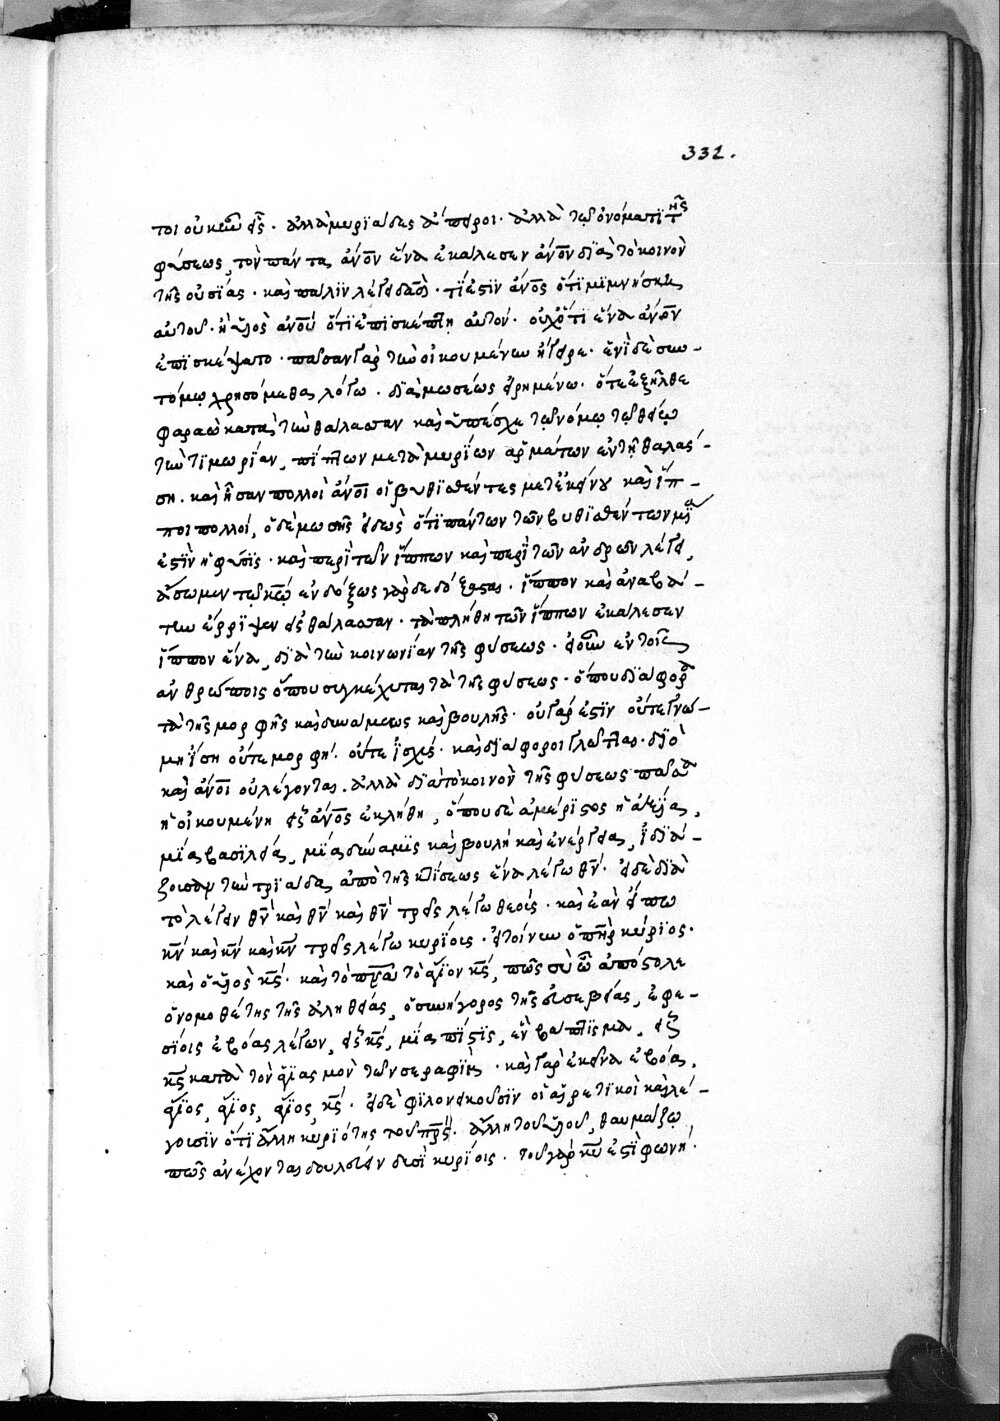 332.
τοι οὐκοῦν εἷς. ἀλλὰ μυριάδες ἄπειροι. ἀλλὰ τῷ ὀνόματι τῆς
φύσεως, τὸν πάντας ἀνον ἕνα ἐκάλεσεν ἀνον διὰ τὸ κοινὸν
τῆς οὐσίας. καὶ πάλιν λέγει δαδ. τί ἐστιν ἀνος ὅτι μιμνήσκη
αὐτοῦ. ἢ υἱὸς ἀνου ὅτι ἐπισκέπτη αὐτόν. οὐχ ὅτι ἕνα ἀνον
ἐπισκέψατο. πᾶσαν γὰρ τὴν οἰκουμένην ηὗρε. ἑνὶ δὲ συν-
τόμω χρησόμεθα λόγω. διὰ μωσέως εἰρημένω. ὅτε ἐξῆλθε
φαραὼ κατὰ τὴν θάλασσαν καὶ ὑπέσχε τῷ νόμῳ τῷ θείῳ
τὴν τιμωρίαν, πίπτων μετὰ μυρίων ἁρμάτων ἐν τῇ θαλάσ-
ση. καὶ ἦσαν πολλοὶ ἀνοι οἱ βυθισθέντες μετ' ἐκείνου καὶ ἵπ-
ποι πολλοί, ὁ δὲ μωσῆς εἰδὼς ὅτι πάντων τῶν βυθισθέντων μία
ἐστὶν ἡ φύσις. καὶ περὶ τῶν ἵππων καὶ περὶ τῶν ἀνδρῶν λέγει,
ἄσωμεν τῷ κω ἐνδόξως γὰρ δεδόξασται. ἵππον καὶ ἀναβά-
την ἔρριψεν εἰς θάλασσαν. τὰ πλήθη τῶν ἵππων ἐκάλεσεν
ἵππον ἕνα, διὰ τὴν κοινωνίαν τῆς φύσεως. εἰ οὖν ἐν τοῖς
ἀνθρώποις ὅπου συγκέχυται τὰ τῆς φύσεως. ὅπου διάφορα
τὰ τῆς μορφῆς καὶ δυνάμεως καὶ βουλῆς. οὐ γάρ ἐστιν οὔτε γνώ-
μη ἴση οὔτε μορφή. οὔτε ἰσχύς. καὶ διάφοροι γλῶτται. διὸ
καὶ ἀνοι οὐ λέγονται. ἀλλὰ διὰ τὸ κοινὸν τῆς φύσεως πᾶσα
ἡ οἰκουμένη εἷς ἀνος ἐκλήθη, ὅπου δὲ ἀμέριστος ἡ ἀξία,
μία βασιλεία, μία δύναμις καὶ βουλὴ καὶ ἐνέργεια, ἰδιά-
ζουσαν τὴν τριάδα ἀπὸ τῆς κτίσεως ἕνα λέγω θν. εἰ δὲ διὰ
τὸ λέγειν θν καὶ θν καὶ θν τρεῖς λέγω θεούς. καὶ ἐὰν εἴπω
κν καὶ κν καὶ κν τρεῖς λέγω κυρίους. εἰ τοίνυν ὁ πηρ κύριος.
καὶ ὁ υἱὸς κς. καὶ τὸ πνα τὸ ἅγιον κς, πῶς σὺ ὦ ἀπόστολε
ὁ νομοθέτης τῆς ἀληθείας, ὁ συνήγορος τῆς εὐσεβείας, ἐφε-
σίοις ἐβόας λέγων, εἷς κς, μία πίστις, ἓν βάπτισμα, εἷς
κς κατὰ τὸν ἁγιασμὸν τῶν σεραφίμ. καὶ γὰρ ἐκεῖνα ἐβόα,
ἅγιος, ἅγιος, ἅγιος, κς. εἰ δὲ φιλονεικοῦσιν οἱ αἱρετικοὶ καὶ λέ-
γουσιν ὅτι ἄλλη κυριότης τοῦ πρς. ἄλλη τοῦ υἱοῦ, θαυμάζω
πῶς ἀνέχονται δουλεύειν δυσὶ κυρίοις. τοῦ γὰρ κυ ἐστὶ φωνή.